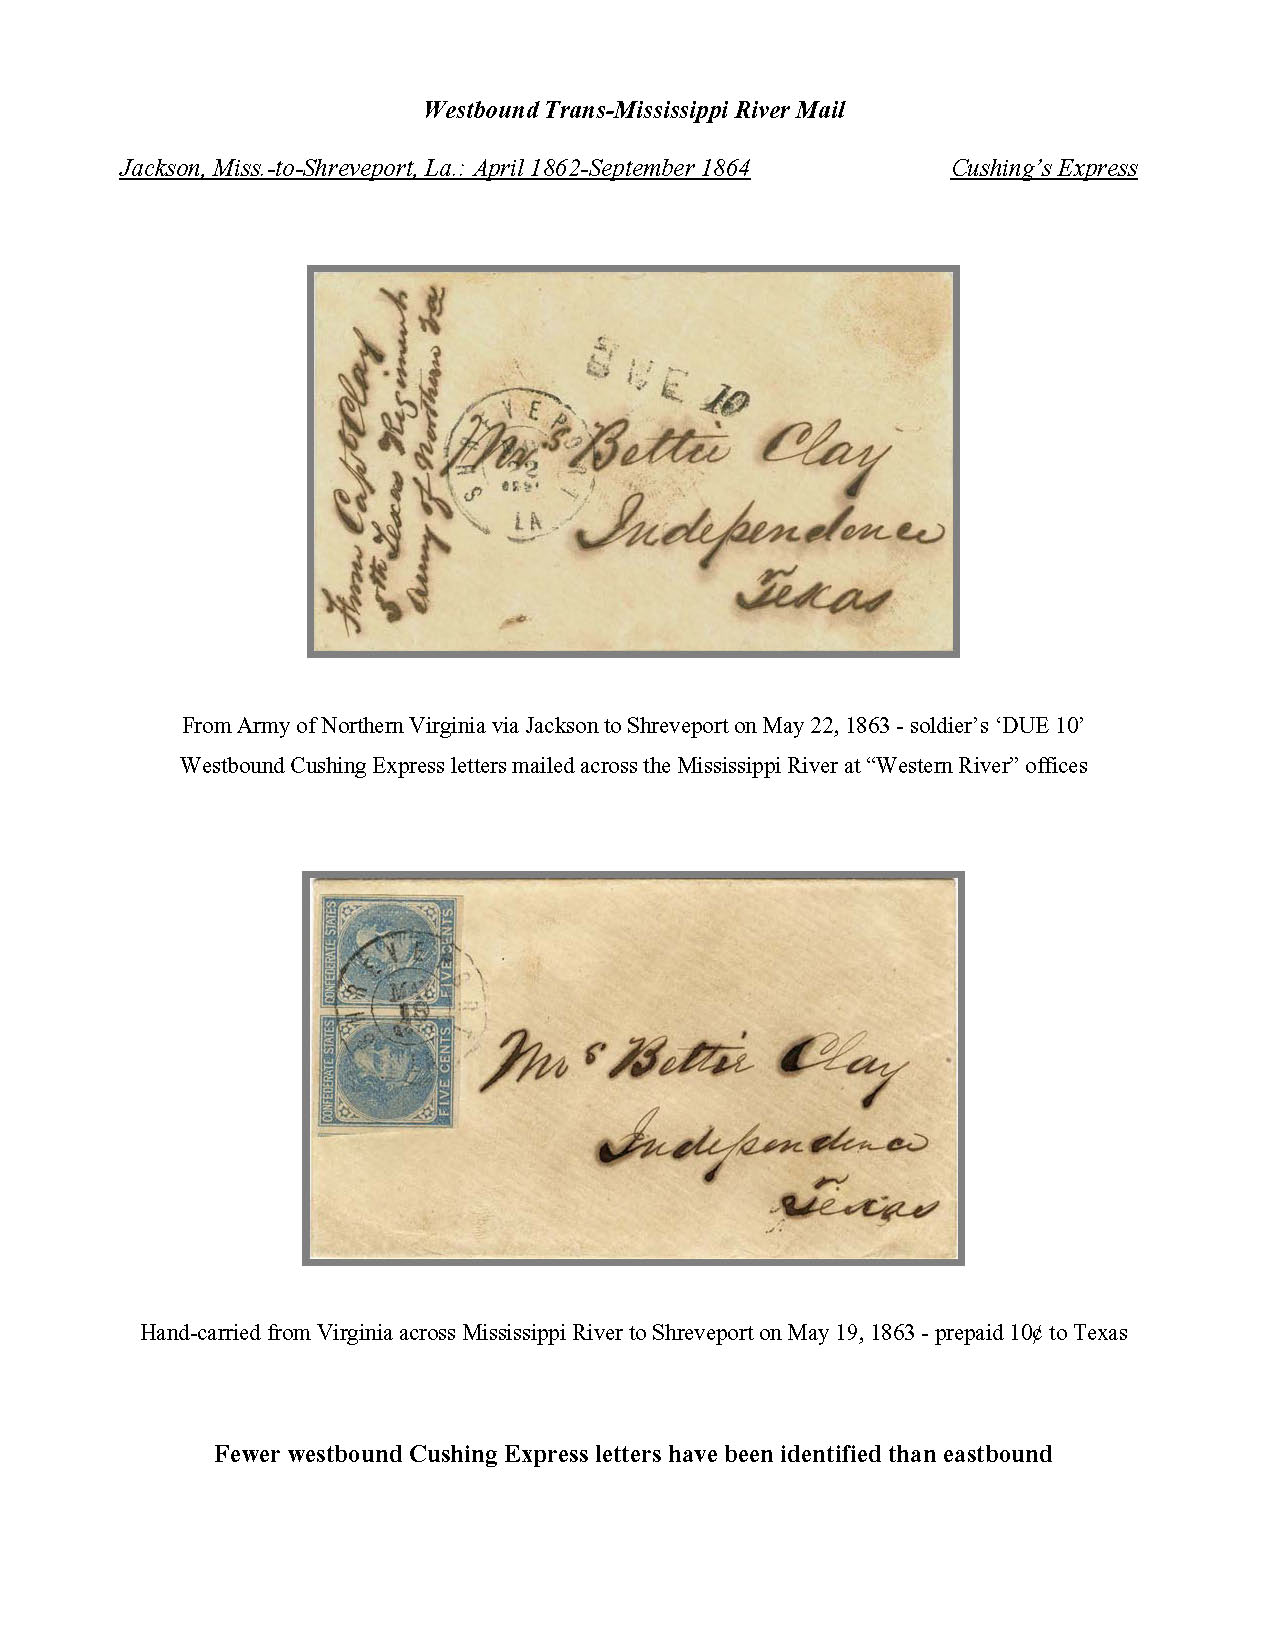 Westbound Trans-Mississippi River Mail
Jackson, Miss.-to-Shreveport, La.: April 1862-September 1864 Cushing's Express
From Capt Clay
5th Texas Regiment
Army of Northern Va
DUE 10
SHREVEPORT
MAY
22
LA
Mrs Bettie Clay
Independence
Texas
From Army of Northern Virginia via Jackson to Shreveport on May 22, 1863 - soldier's ‘DUE 10’
Westbound Cushing Express letters mailed across the Mississippi River at “Western River” offices
CONFEDERATE STATES
FIVE CENTS
CONFEDERATE STATES
FIVE CENTS
SHREVEPORT
MAY
19
Mrs Bettie Clay
Independence
Texas
Hand-carried from Virginia across Mississippi River to Shreveport on May 19, 1863 - prepaid 10¢ to Texas
Fewer westbound Cushing Express letters have been identified than eastbound